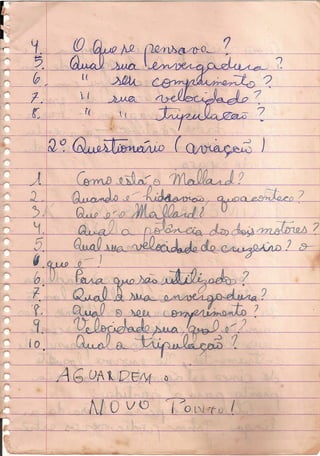 4. O que se pensava?
5. Qual sua envergadura?
6 " seu comprimento?
7. " sua velocidade?
8. " " tripulação?
2º Questionário (aviação)
1 Como está o Mallard?
2. Quando é hidroavião, acontece?
3. Que é o Mallard?
4. Qual a potência do dois motores?
5. Qual sua velocidade de cruzeiro? o
que é !
6. Para que são utilizado?
7. Qual a sua envergadura?
8. Qual o seu comprimento?
9 Velocidade sua, qual é?
10. Qual a tripulação?
AGUARDEM o
NOVO PONTO!